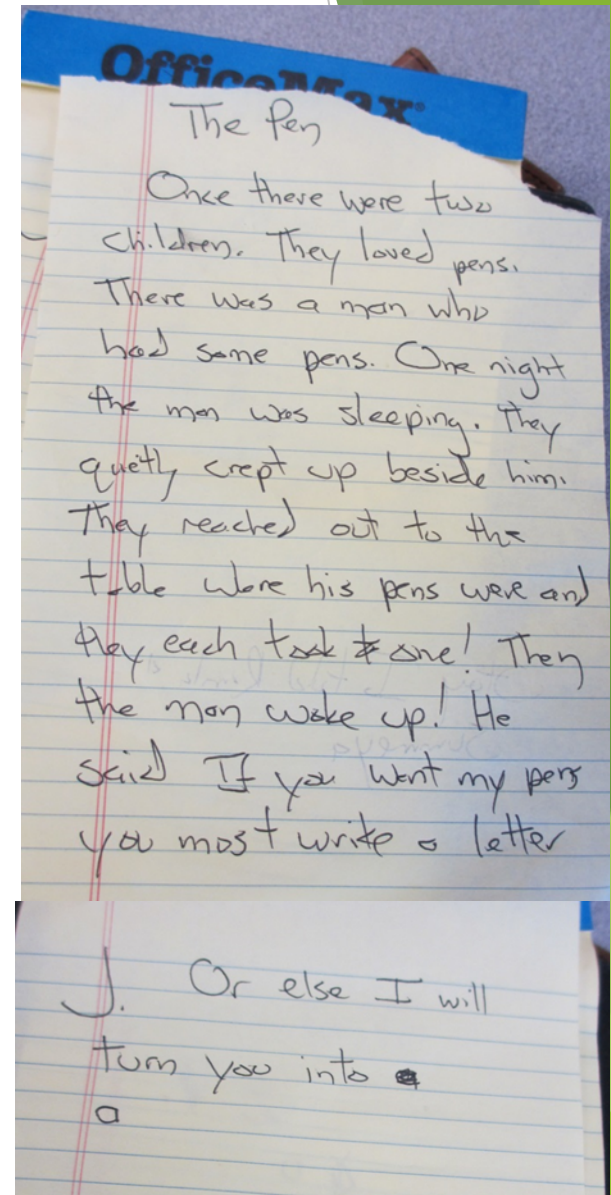 OfficeMax
The Pen
Once there were two
children. They loved pens.
There was a man who
had some pens. One night
the man was sleeping. They
crept up beside him.
They reached out to the
table were his pens were and
they each took one! Then
the man woke up! He
said If you want my pens
you most write a letter
J. Or else I will
turn you into
a